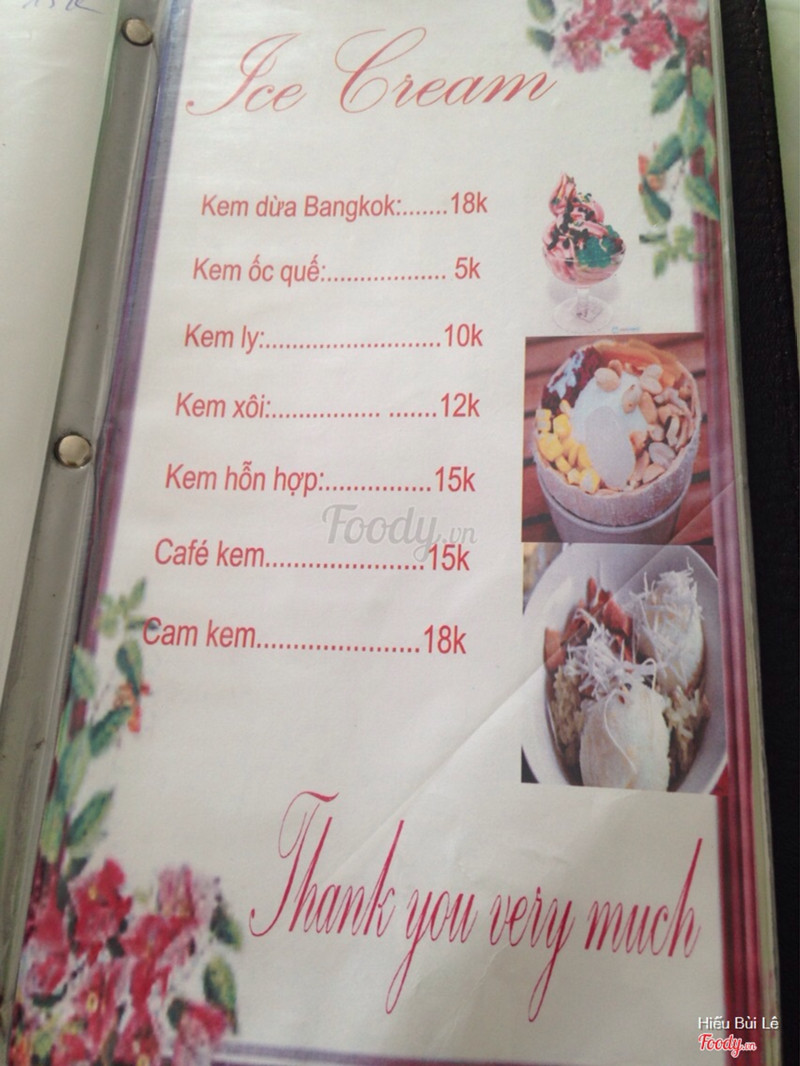 Ice Cream
Kem dừa Bangkok:.......18k
Kem ốc quế:.................... 5k
Kem ly:...........................10k
Kem xôi:................. .......12k
Kem hỗn hợp:................15k
Foody.vn
Café kem.......................15k
Cam kem.......................18k
Thank you very much
Hiếu Bùi Lê
Foody.vn